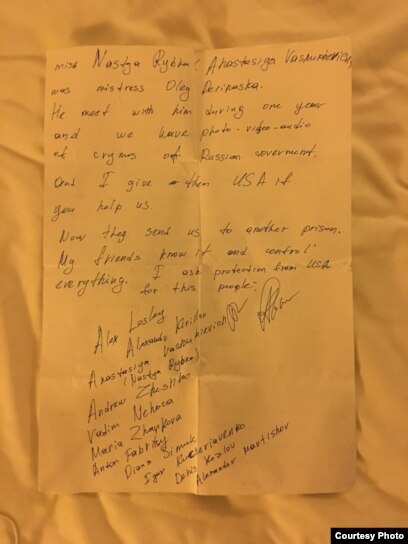 miss Nastya Rybka / Anastasiya Vashukevich,
was mistress Oleg Deripaska.
He meet with him during one year
and we have photo-video-audio
of crymes of Russian goverment.
and I give them USA if
you help us.
Now they send us to another prison.
My friends know it and control
everything. I ask protection from USA
for this people:
Alex Lesley
Alexander Kirillov
Anastasiya Vashukevich
(Nastya Rybka)
Andrew
Vadim
Maria
Anton Fabritsy
Diana
Igor
Denis Kozlov
Alexander Martishov
Courtesy Photo